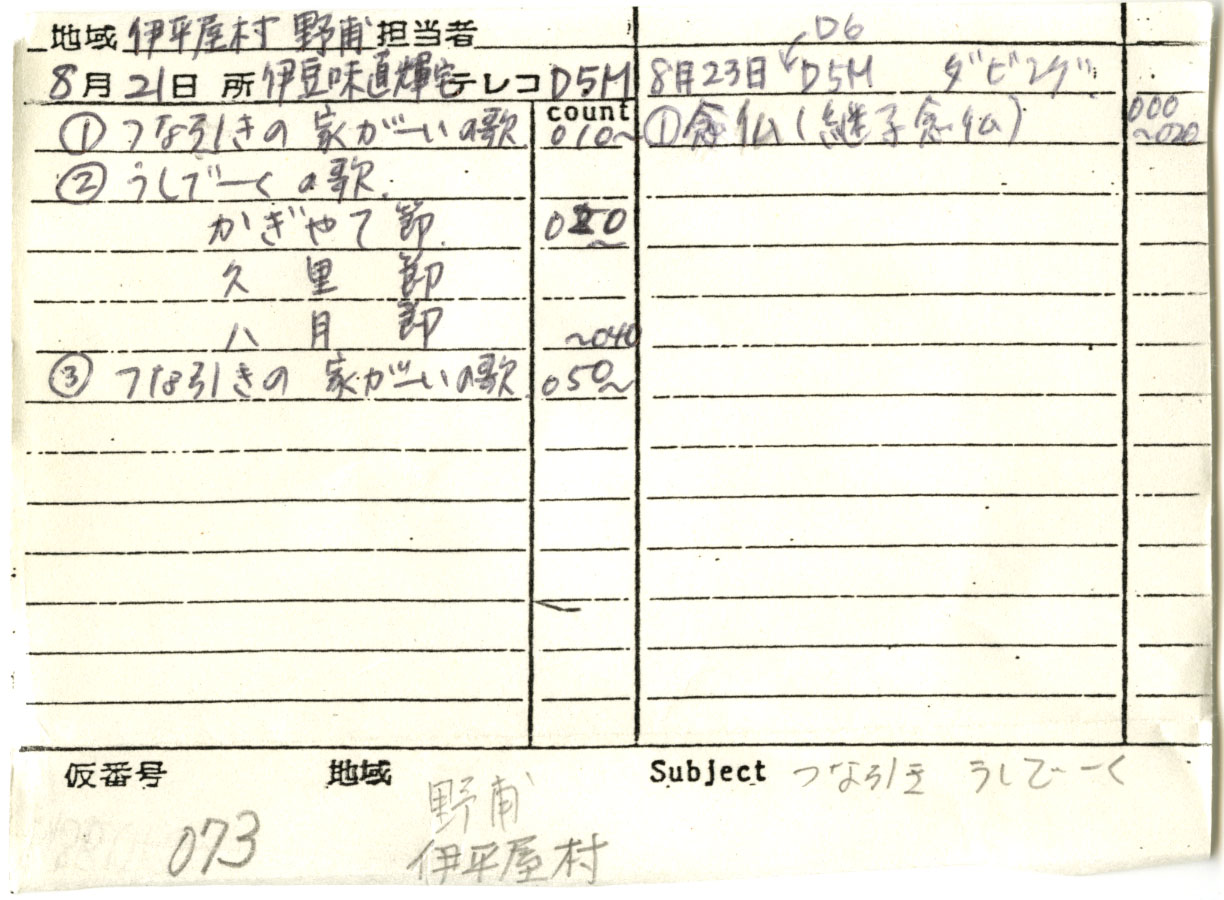 地域 伊平屋村 野甫 担当者
8月21日 所 伊豆味直輝宅 テレコ D5M
count
① つな引きの 家がーいの歌 010~
② うしでーくの歌
かぎやて節
久里節
八月節 ~040
③ つな引きの 家がーいの歌 050~
D6
8月23日 D5M ダビング
① 念仏(継子念仏) 000~020
仮番号 073
地域 野甫
伊平屋村
Subject つな引き うしでーく